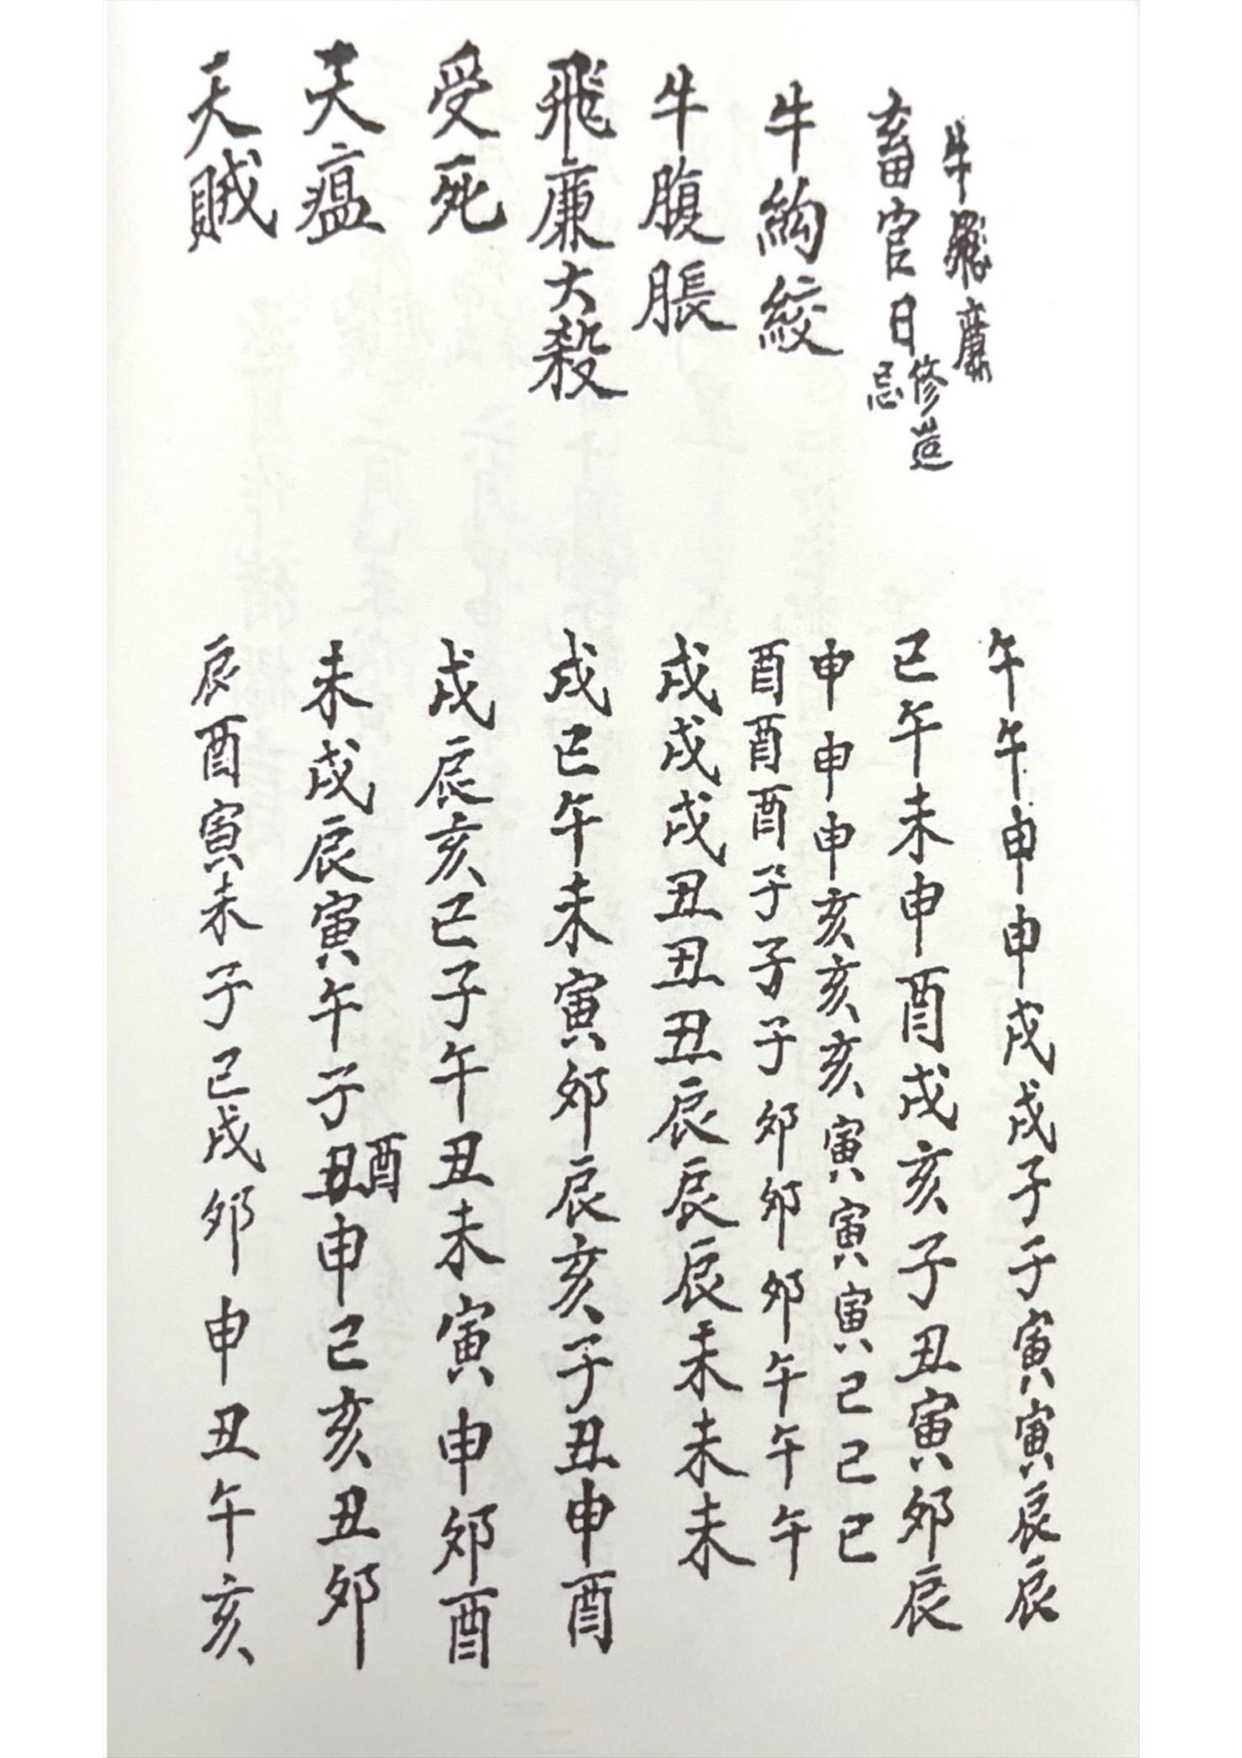 牛飛廉 午午申申戌戌子子寅寅辰辰
畜官日修造忌 巳午未申酉戌亥子丑寅卯辰
牛鈎絞 申申申亥亥亥寅寅寅巳巳巳
酉酉酉子子子卯卯卯午午午
牛腹脹 戌戌戌丑丑丑辰辰辰未未未
飛廉大殺 戌巳午未寅卯辰亥子丑申酉
受死 戌辰亥巳子午丑未寅申卯酉
天瘟 未戌辰寅午子丑酉申巳亥丑卯
天賊 辰酉寅未子巳戌卯申丑午亥